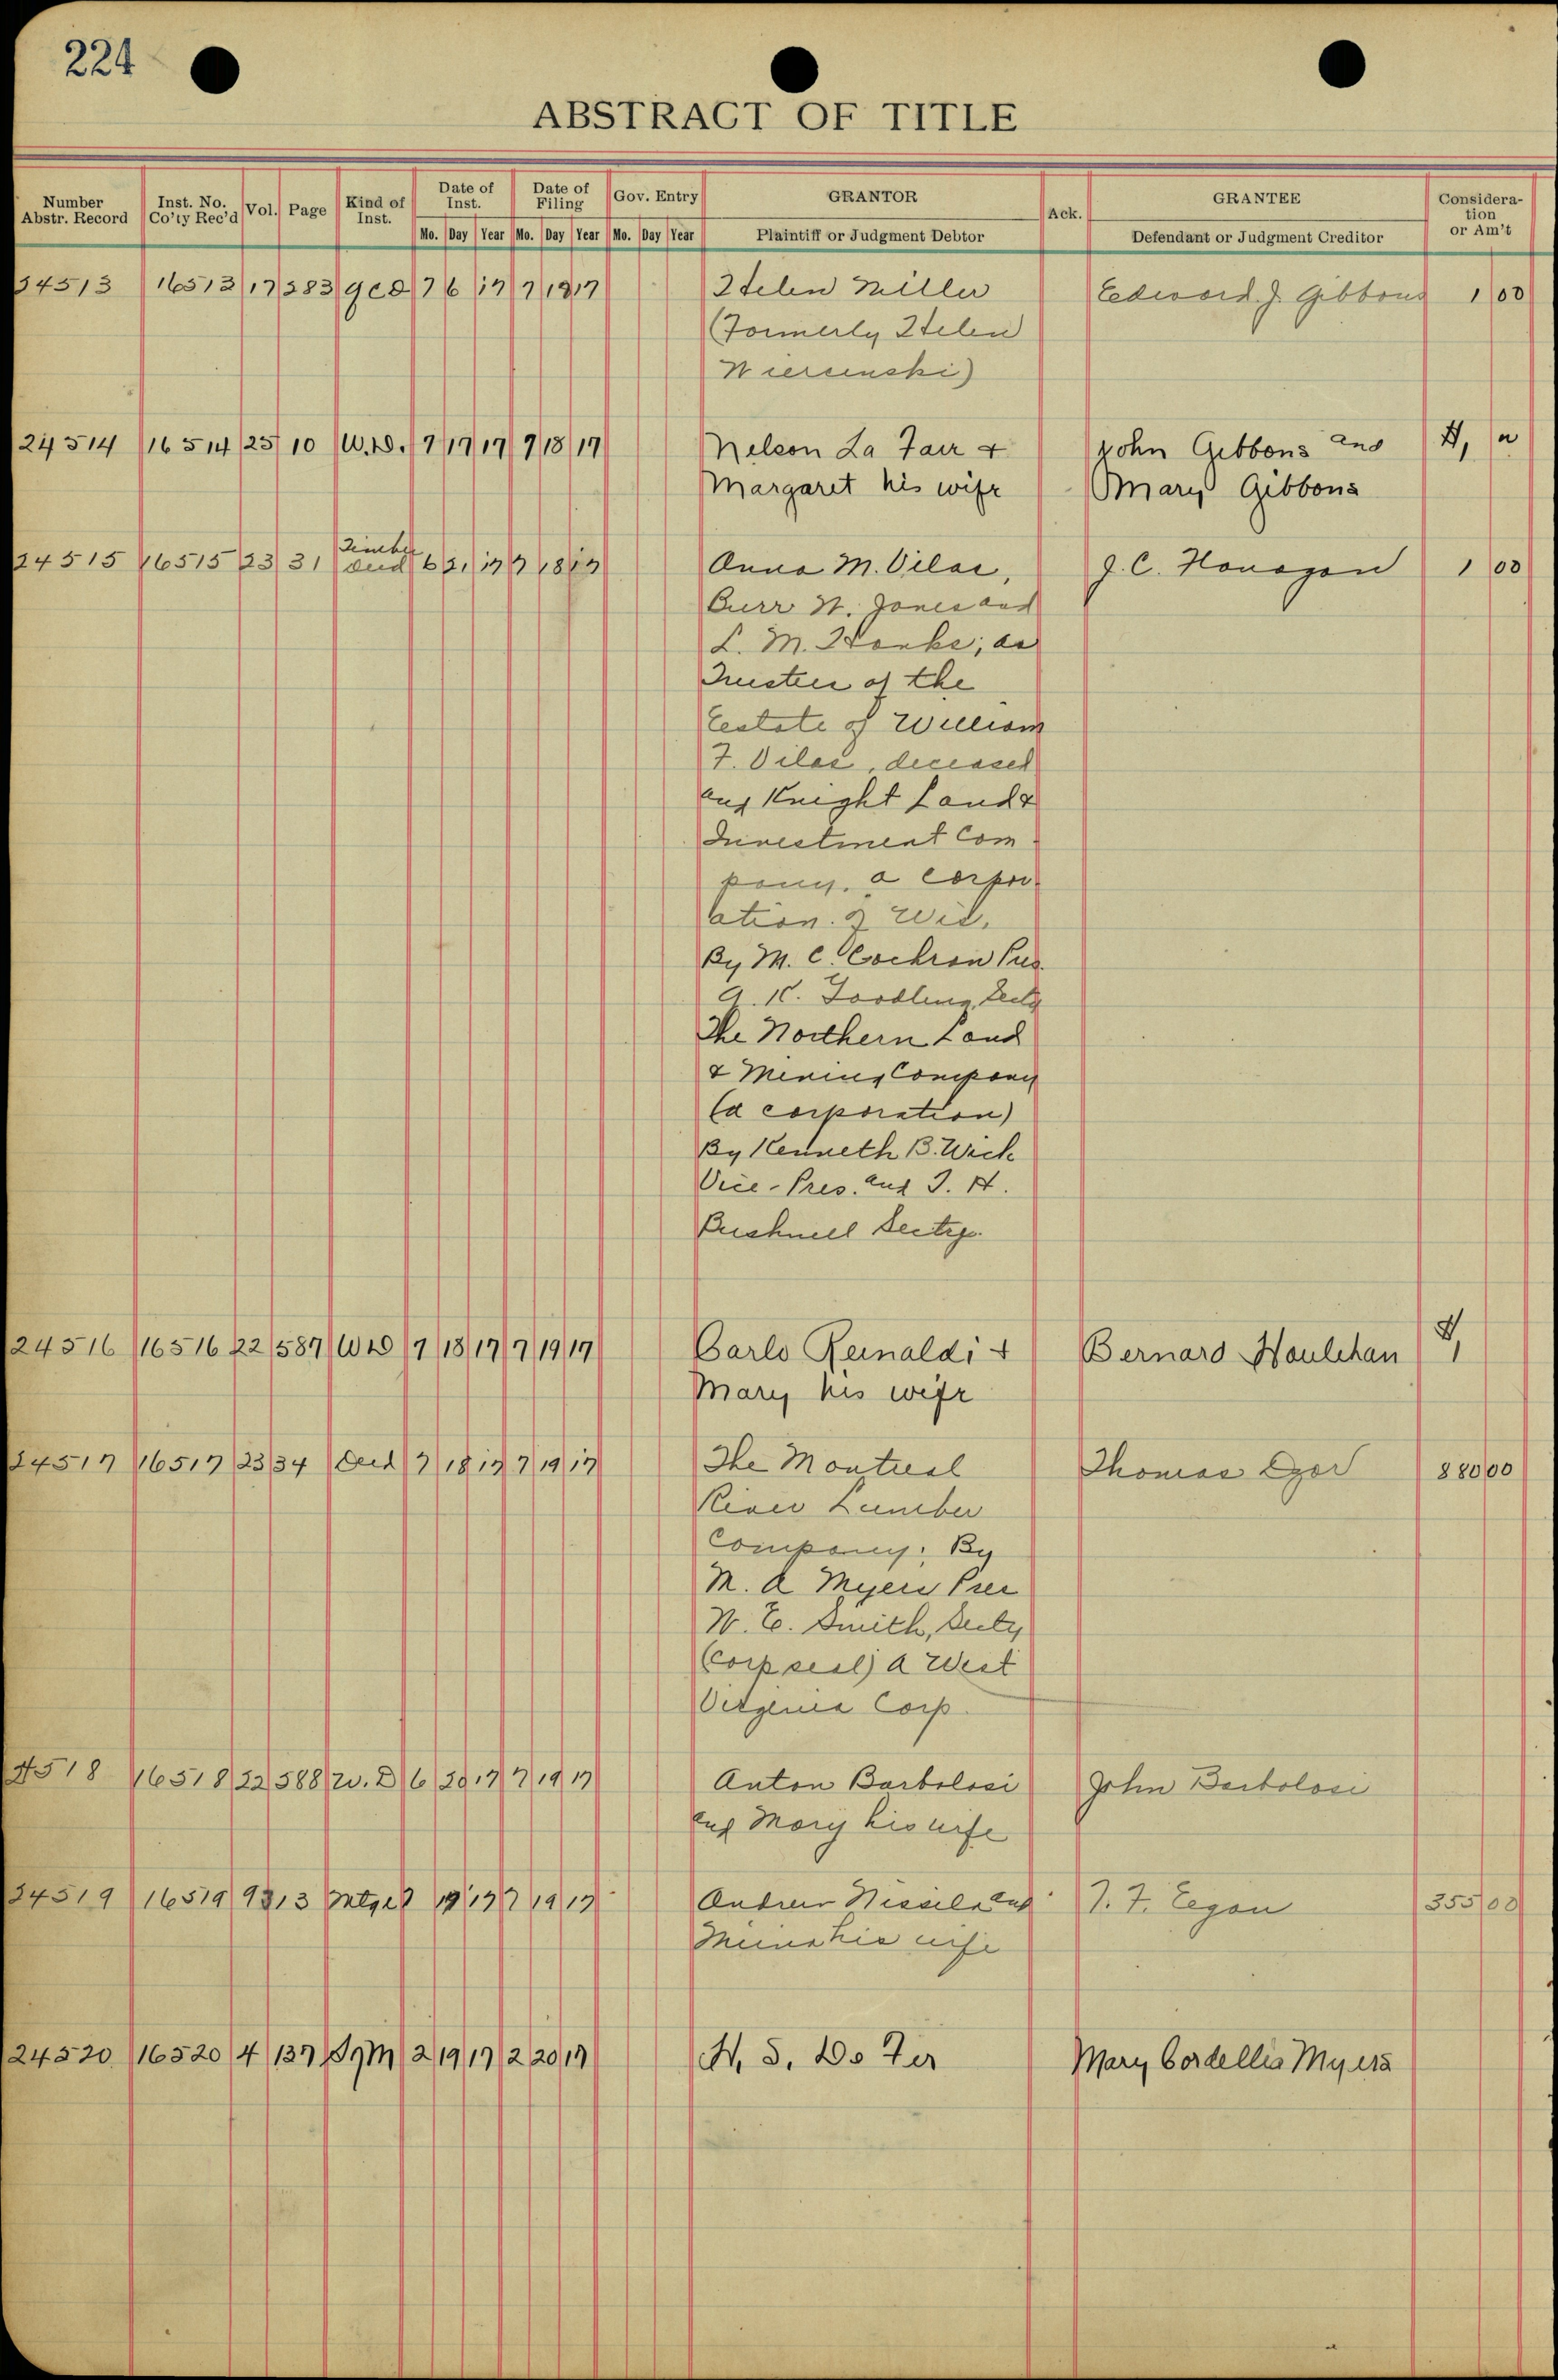 224
ABSTRACT OF TITLE
Number Abstr. Record Inst. No. Co'ty Rec'd Vol. Page Kind of Inst. Date of Inst. Date of Filing Gov. Entry GRANTOR Ack. GRANTEE Considera-tion or Am't
Mo. Day Year Mo. Day Year Mo. Day Year Plaintiff or Judgment Debtor Defendant or Judgment Creditor
24513 16513 17 383 qcd 7 6 17 7 18 17 Helen Miller Edward J. Gibbons 1 00
(Formerly Helen
Wiersinski)
24514 16514 25 10 W.D. 7 17 17 7 18 17 Nelson La Fair & John Gibbons and
Margaret his wife Mary Gibbons
24515 16515 23 31 Timber deed 6 21 17 7 18 17 Anna M. Vilas, J. C. Honagan 1 00
Burr W. Jones and
L. M. Hanks, as
Trustees of the
Estate of William
F. Vilas, deceased
and Knight Land &
Investment Com
pany, a corpor
ation of Wis.
By M. C. Cochran Pres.
A. K. Goodling, Secty
The Northern Land
& Mining Company
(a corporation)
By Kenneth B. Wick
Vice-Pres. and T. H.
Bushnell Secty.
24516 16516 22 587 WD 7 18 17 7 19 17 Carlo Reinaldi & Bernard Houlehan
Mary his wife
24517 16517 23 34 Deed 7 18 17 7 19 17 The Montreal Thomas 880 00
River Lumber
Company. By
M. A Myers Pres
W. E. Smith, Secty
(Corp seal) a West
Virginia Corp.
24518 16518 22 588 W. D 6 29 17 7 19 17 Anton Bartolosi John Bartolosi
and Mary his wife
24519 16519 9 313 Mtge 7 19 17 7 19 17 Andrew and T. F. Egan 355 00
his wife
24520 16520 4 137 2 19 17 2 20 17 H. S. Do Fer Mary Cordellia Myers